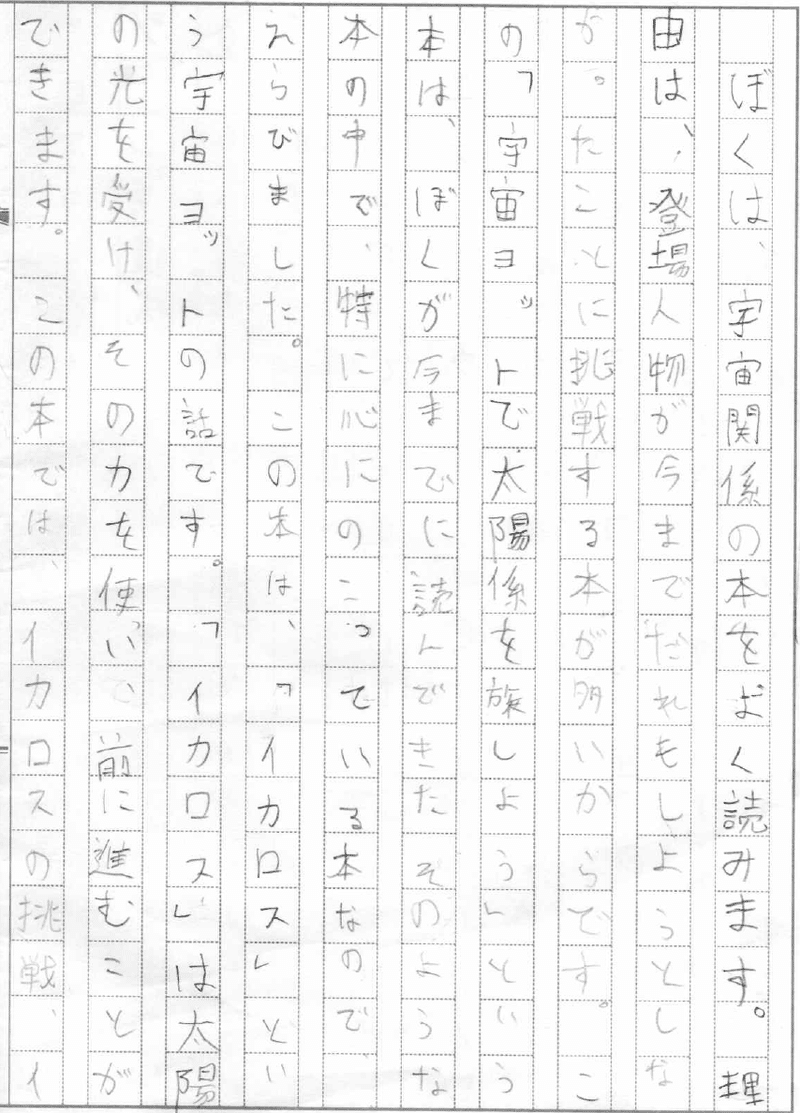 ぼくは、宇宙関係の本をよく読みます。理
由は、登場人物が今までだれもしようとしな
か。たことに挑戦する本が多いからです。こ
の「宇宙ヨットで太陽係を旅しよう」という
本は、ぼくが今までに読んできたそのような
本の中で、特に心にのこっている本なので、
えらびました。この本は、「イカロス」とい
う宇宙ヨットの話です。「イカロス」は太陽
の光を受け、その力を使い、前に進むことが
できます。この本では、イカロスの挑戦、イ